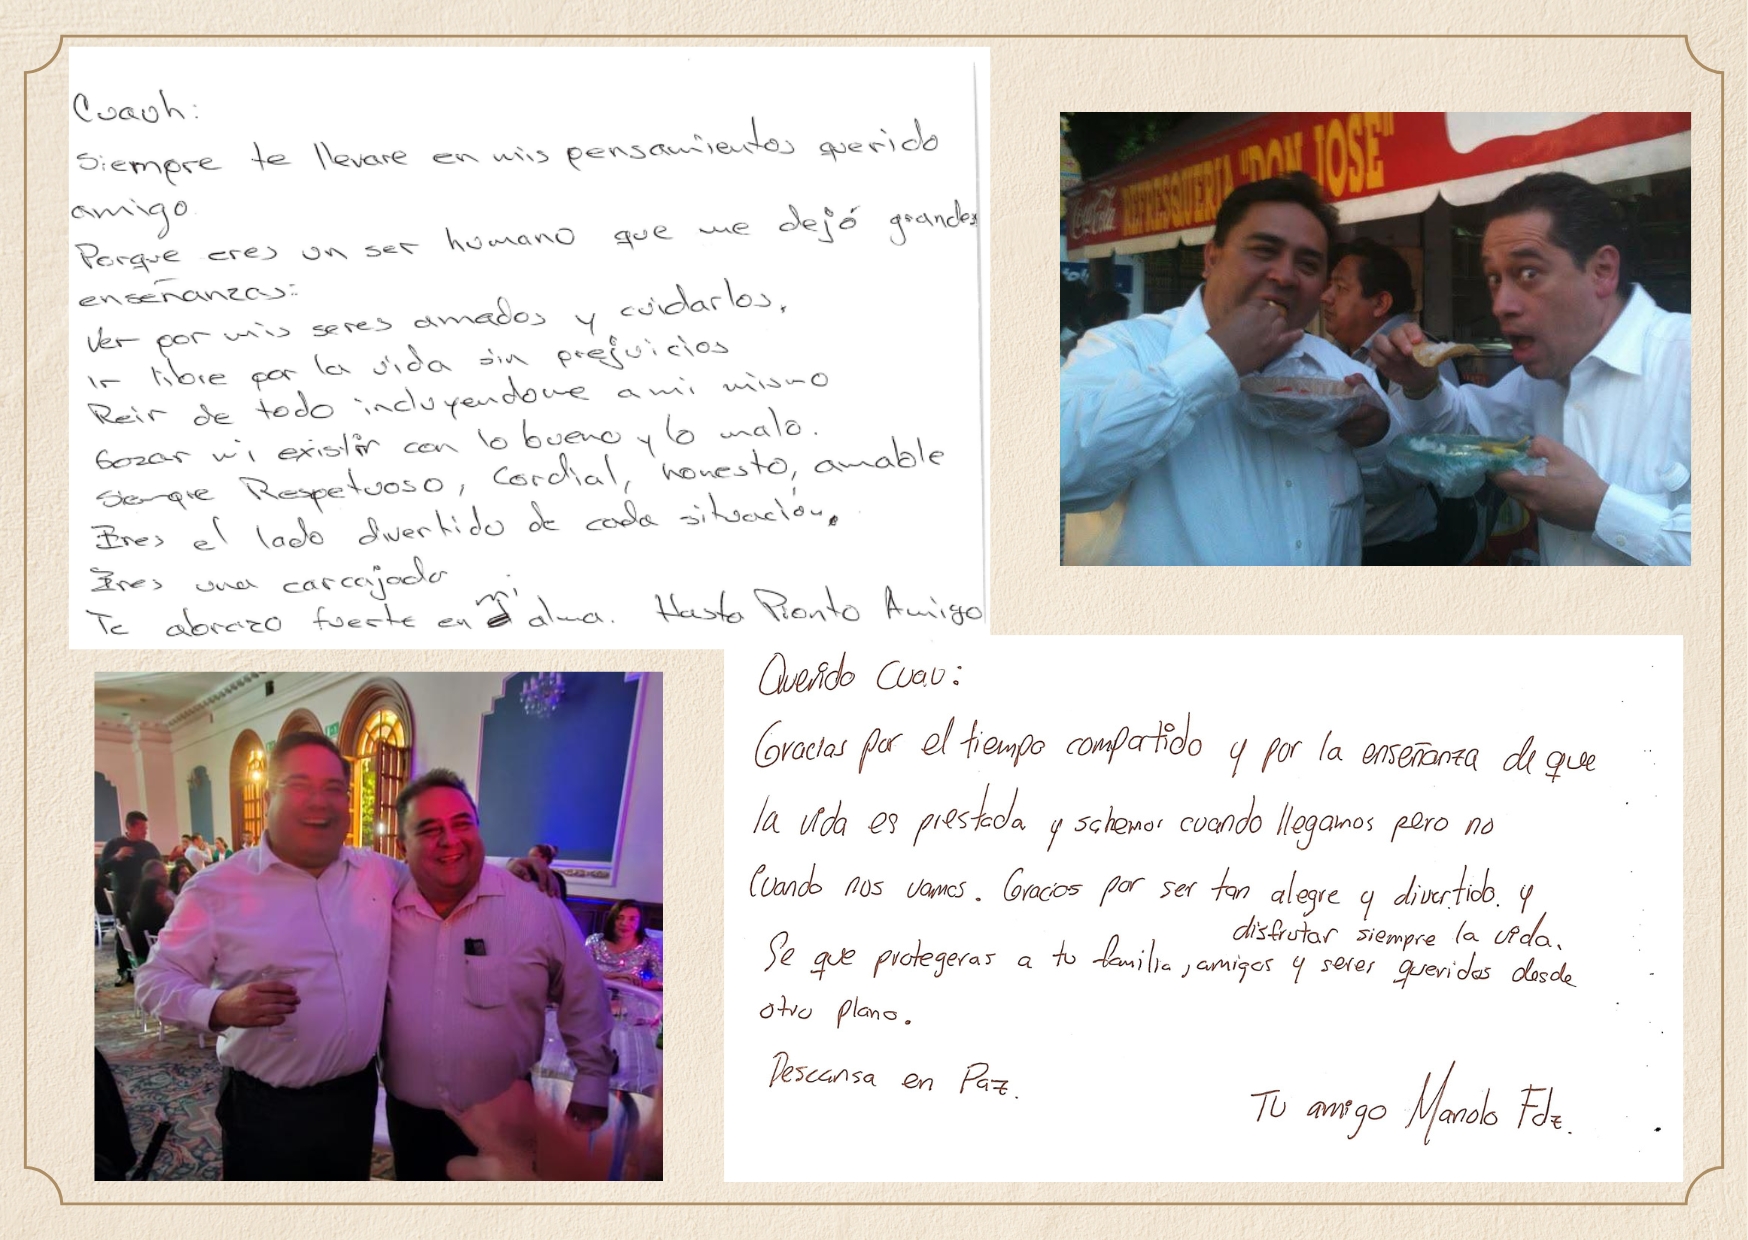 Cuauh:
Siempre te llevare en mis pensamientos querido
amigo
Porque eres un ser humano que me dejó grandes
enseñanzas:
Ver por mis seres amados y cuidarlos,
ir libre por la vida sin prejuicios
Reir de todo incluyendome a mi mismo
Gozar mi existir con lo bueno y lo malo.
Siempre Respetuoso, Cordial, honesto, amable
Eres el lado divertido de cada situación.
Eres una carcajada
Te abrazo fuerte en mi alma. Hasta Pronto Amigo
Coca-Cola
REFRESQUERIA "DON JOSE"
Querido Cuau:
Gracias por el tiempo compartido y por la enseñanza de que
la vida es prestada y sabemos cuando llegamos pero no
Cuando nos vamos. Gracias por ser tan alegre y divertido. y
disfrutar siempre la vida.
Se que protegeras a tu familia, amigos y seres queridos desde
otro plano.
Descansa en Paz.
Tu amigo Manolo Fdz.